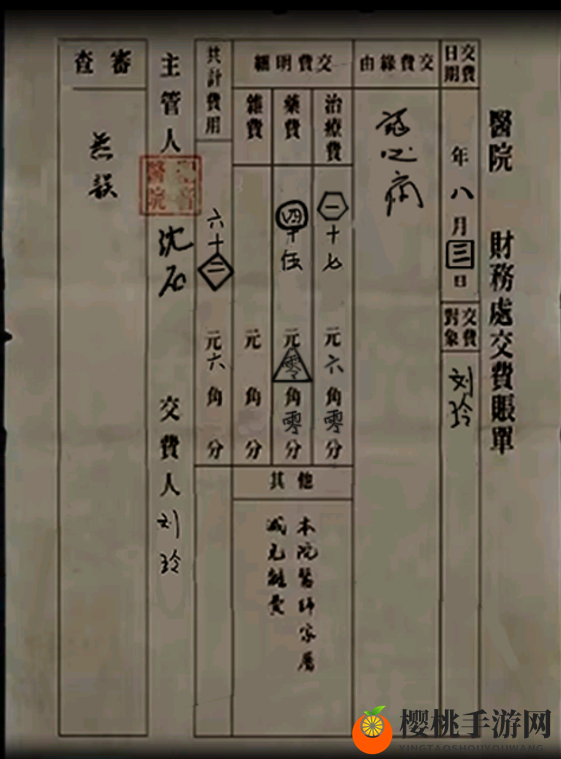 醫院 財務處交費賬單
交費日期
年八月三日
交費對象
刘玲
交費緣由
冠心病
交費明細
治療費
一十七元六角零分
藥費
四十伍元零角零分
雜費
元 角 分
其他
本院醫師家屬
減免雜費
共計費用
六十二元六角 分
主管人 沈石
交費人 刘玲
審查
無誤
樱桃手游网
YINGTAOSHOUYOUWANG